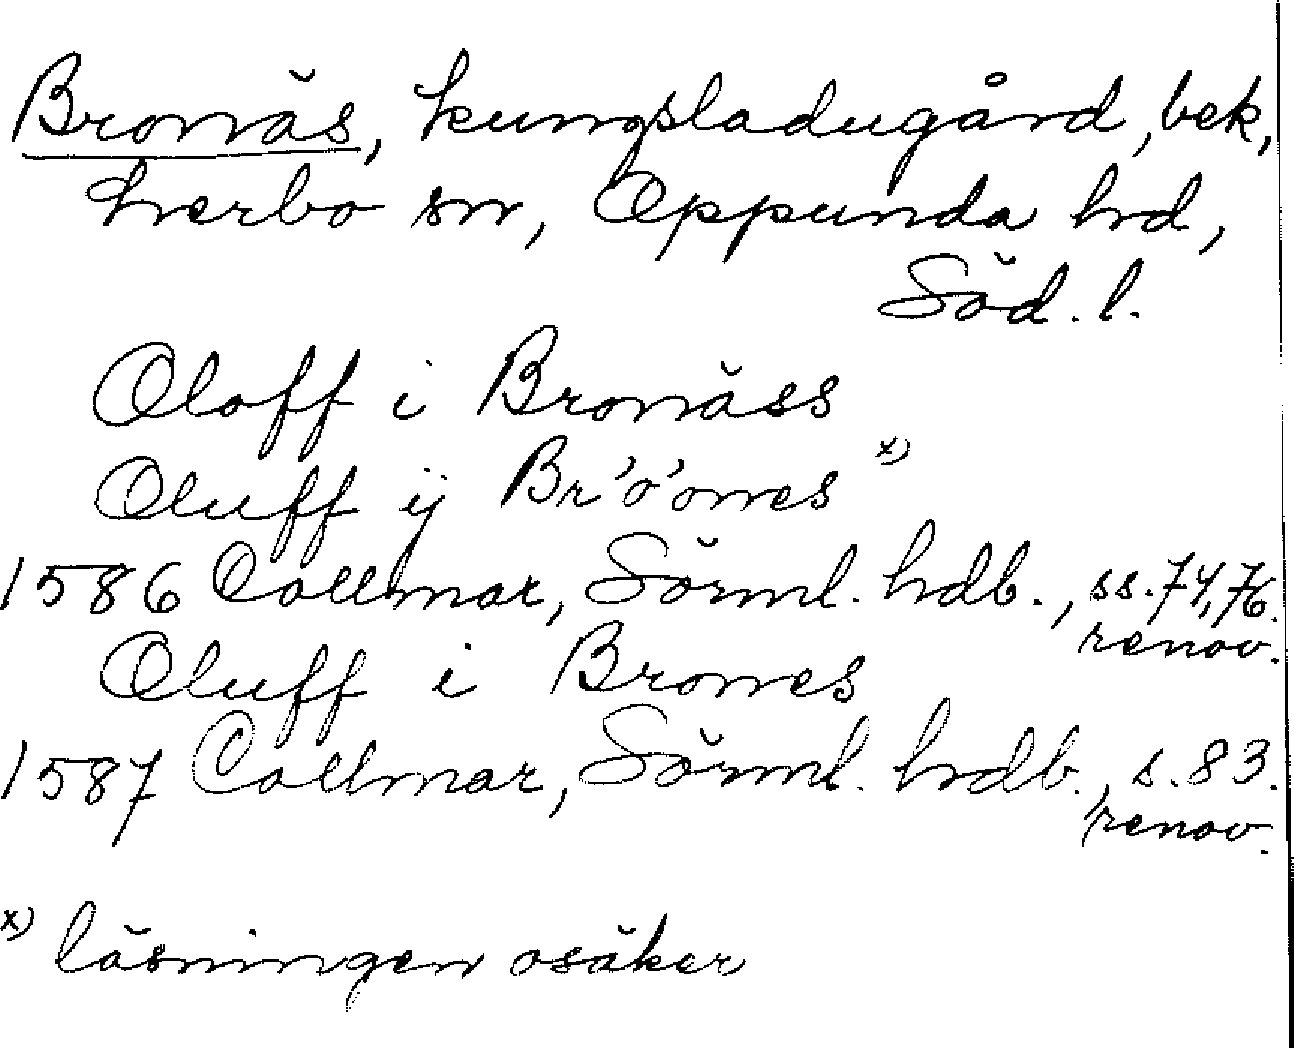 Bronäs, kungsladugård, bek,
Lerbo sn, Oppunda hd,
Söd. l.
Oloff i Bronäss
Oluff ÿ Br'o'ones x)
1586 Collmar, Sörml. hdb., ss. 74, 76.
renov.
Oluff i Brones
1587 Collmar, Sörml. hdb., s. 83.
renov.
x) läsningen osäker